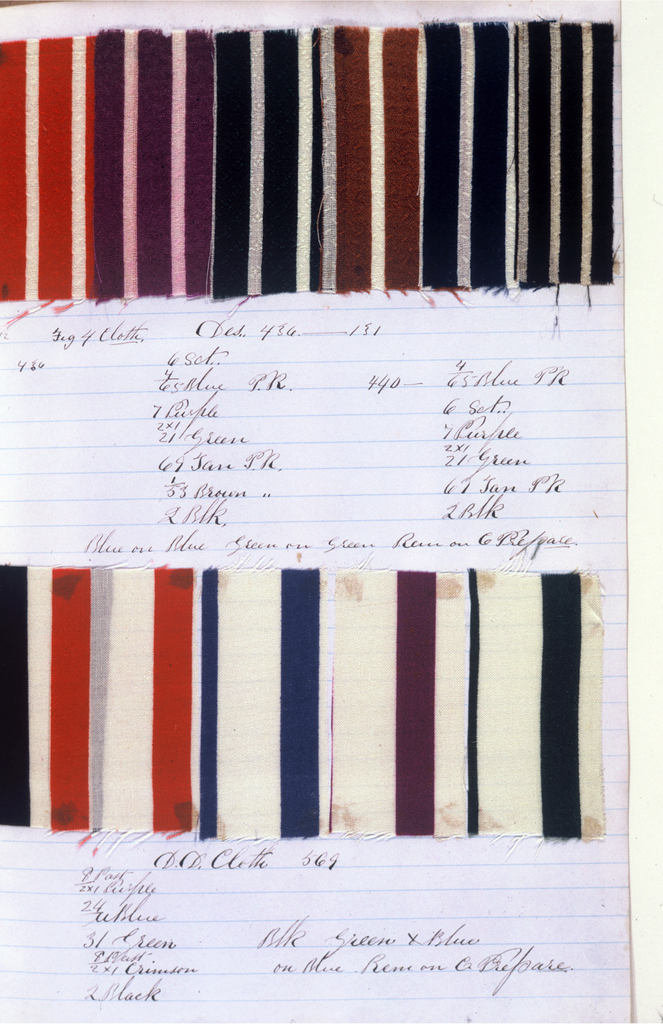 Fig 4 Cloth, Des. 436 — 131
436
6 Sct.
4/65 Blue P.K.
7 Purple
2x1
21 Green
69 Tan P.K.
1/53 Brown "
2 Blk,
440 — 4/65 Blue PK
6 Sct.
7 Purple
2x1
21 Green
69 Tan PK
2 Blk
Blue on Blue Green on Green Rem on C Prepare.
D.D. Cloth 569
8 Past
2x1 Purple
24 Blue
31 Green
8 Past
2x1 Crimson
2 Black
Blk Green & Blue
on Blue Rem on C Prepare.